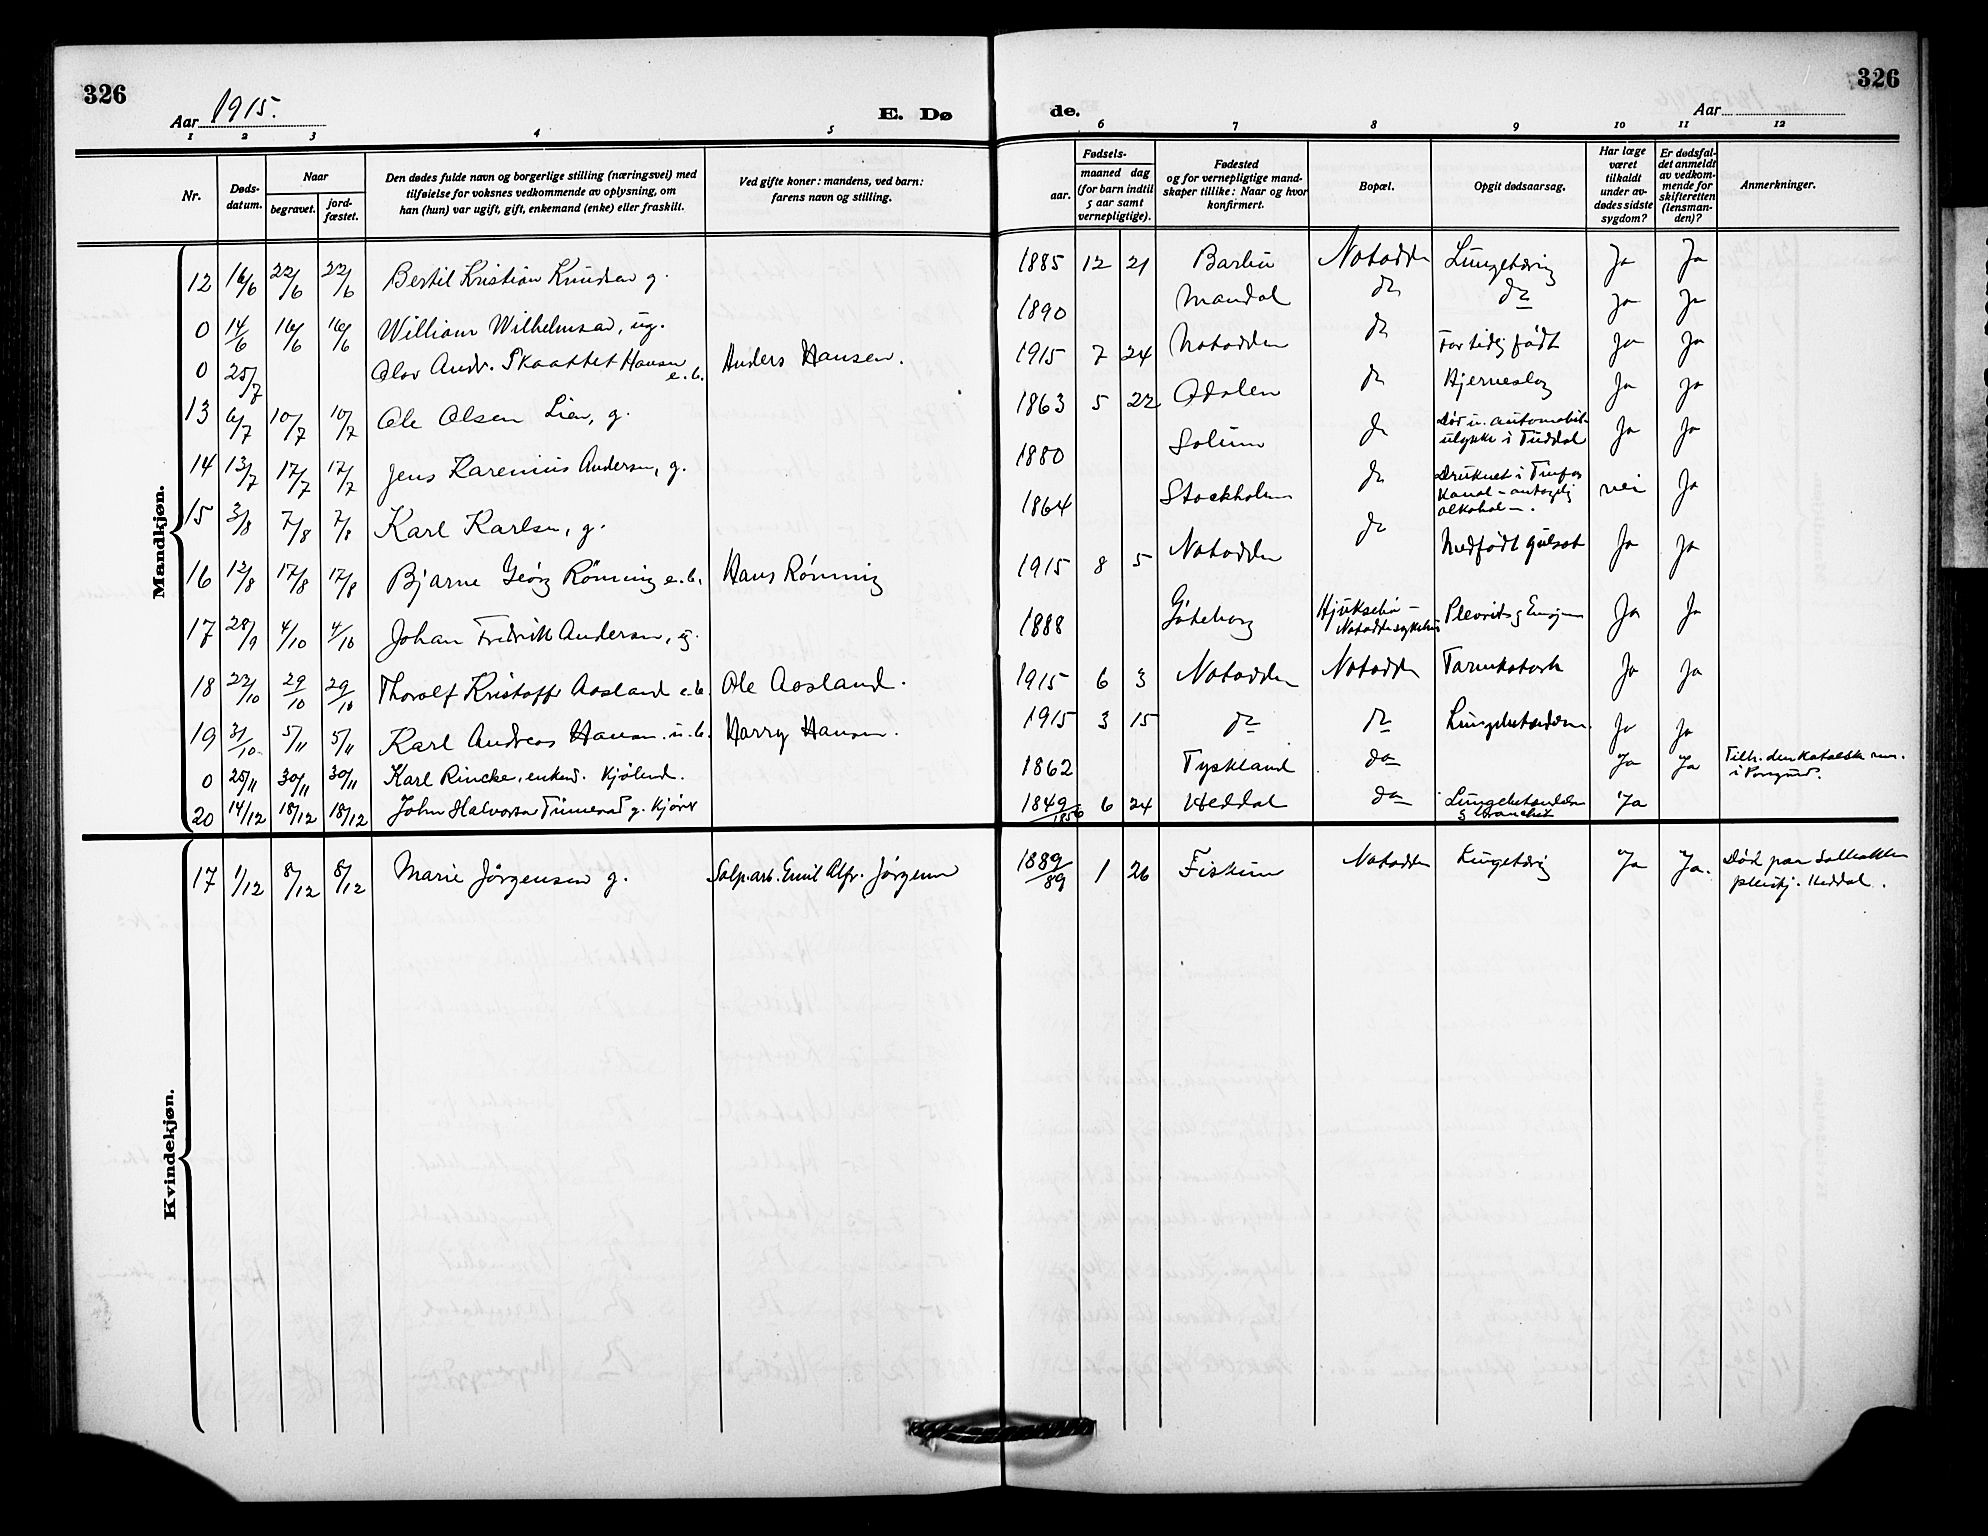 326
Aar 1915.
E. Dø
de.
Aar
326
1 2 3 4 5 6 7 8 9 10 11 12
Nr.
Døds-
datum.
Naar
begravet.
jord-
fæstet.
Den dødes fulde navn og borgerlige stilling (næringsvei) med
tilføielse for voksnes vedkommende av oplysning, om
han (hun) var ugift, gift, enkemand (enke) eller fraskilt.
Ved gifte koner: mandens, ved barn:
farens navn og stilling.
Fødsels-
aar.
maaned dag
(for barn indtil
5 aar samt
vernepligtige).
Fødested
og for vernepligtige mand-
skaper tillike: Naar og hvor
konfirmert.
Bopæl.
Opgit dødsaarsag.
Har læge
været
tilkaldt
under av-
dødes sidste
sygdom?
Er dødsfal-
det anmeldt
av vedkom-
mende for
skifteretten
(lensman-
den)?
Anmerkninger.
Mandkjøn.
12 16/6 22/6 22/6 Bertil Kristian Knudsen g. 1885 12 21 Barbu Notodden Lungetæring Ja Ja
0 14/6 16/6 16/6 William Wilhelmsen, ug. 1890 Mandal do do Ja Ja
0 25/7 Olav Andr. Skaattet Hansen e.b. Anders Hansen. 1915 7 24 Notodden do For tidlig født Ja Ja
13 6/7 10/7 10/7 Ole Olsen Lien, g. 1863 5 22 Ådalen do Hjerneslag Ja Ja
14 13/7 17/7 17/7 Jens Karenius Andersen, g. 1880 Solum do Død v. automobil-
ulykke i Tuddal Ja Ja
15 3/8 7/8 7/8 Karl Karlsen, g. 1864 Stockholm do Druknet i Tinfos
Kanal - antagelig
alkohol -. nei Ja
16 12/8 17/8 17/8 Bjarne Georg Rønning e.b. Hans Rønning 1915 8 5 Notodden do Medfødt gulsot Ja Ja
17 28/9 4/10 4/10 Johan Fredrik Andersen, ug. 1888 Gøteborg Hjuksebø -
Notodden sykehus Plevrit og Ja Ja
18 22/10 29/10 29/10 Thorolf Kristoffer Aasland e.b. Ole Aasland. 1915 6 3 Notodden Notodden Tarmkatarh Ja Ja
19 31/10 5/11 5/11 Karl Andreas Hansen u.b. Harry Hansen. 1915 3 15 do do Lungebetændelse. Ja Ja
0 25/11 30/11 30/11 Karl Rincke, enkem. 1862 Tyskland do Ja Ja Tilh. den katolske
i Porsgrund.
20 14/12 18/12 18/12 John Halvorsen g. 1849/1856 6 24 Heddal do Lungebetændelse
& bronchit Ja
Kvindekjøn.
17 1/12 8/12 8/12 Marie Jørgensen g. Salp.arb. Emil Alfr. Jørgensen 1889/89 1 26 Fiskum Notodden Lungetæring Ja Ja. Død paa
pleiehj. Heddal.